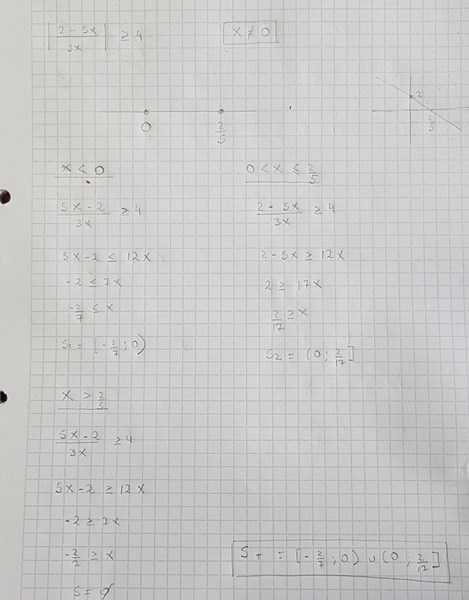 |2 - 5x / 3x| ≥ 4
x ≠ 0
0 2/5
2
2/5
x < 0
5x - 2 / 3x ≥ 4
5x - 2 ≤ 12x
-2 ≤ 7x
-2/7 ≤ x
S1 = [-2/7 ; 0)
0 < x ≤ 2/5
2 - 5x / 3x ≥ 4
2 - 5x ≥ 12x
2 ≥ 17x
2/17 ≥ x
S2 = (0 ; 2/17]
x > 2/5
5x - 2 / 3x ≥ 4
5x - 2 ≥ 12x
-2 ≥ 7x
-2/7 ≥ x
S = ∅
ST = [-2/7 ; 0) ∪ (0 ; 2/17]